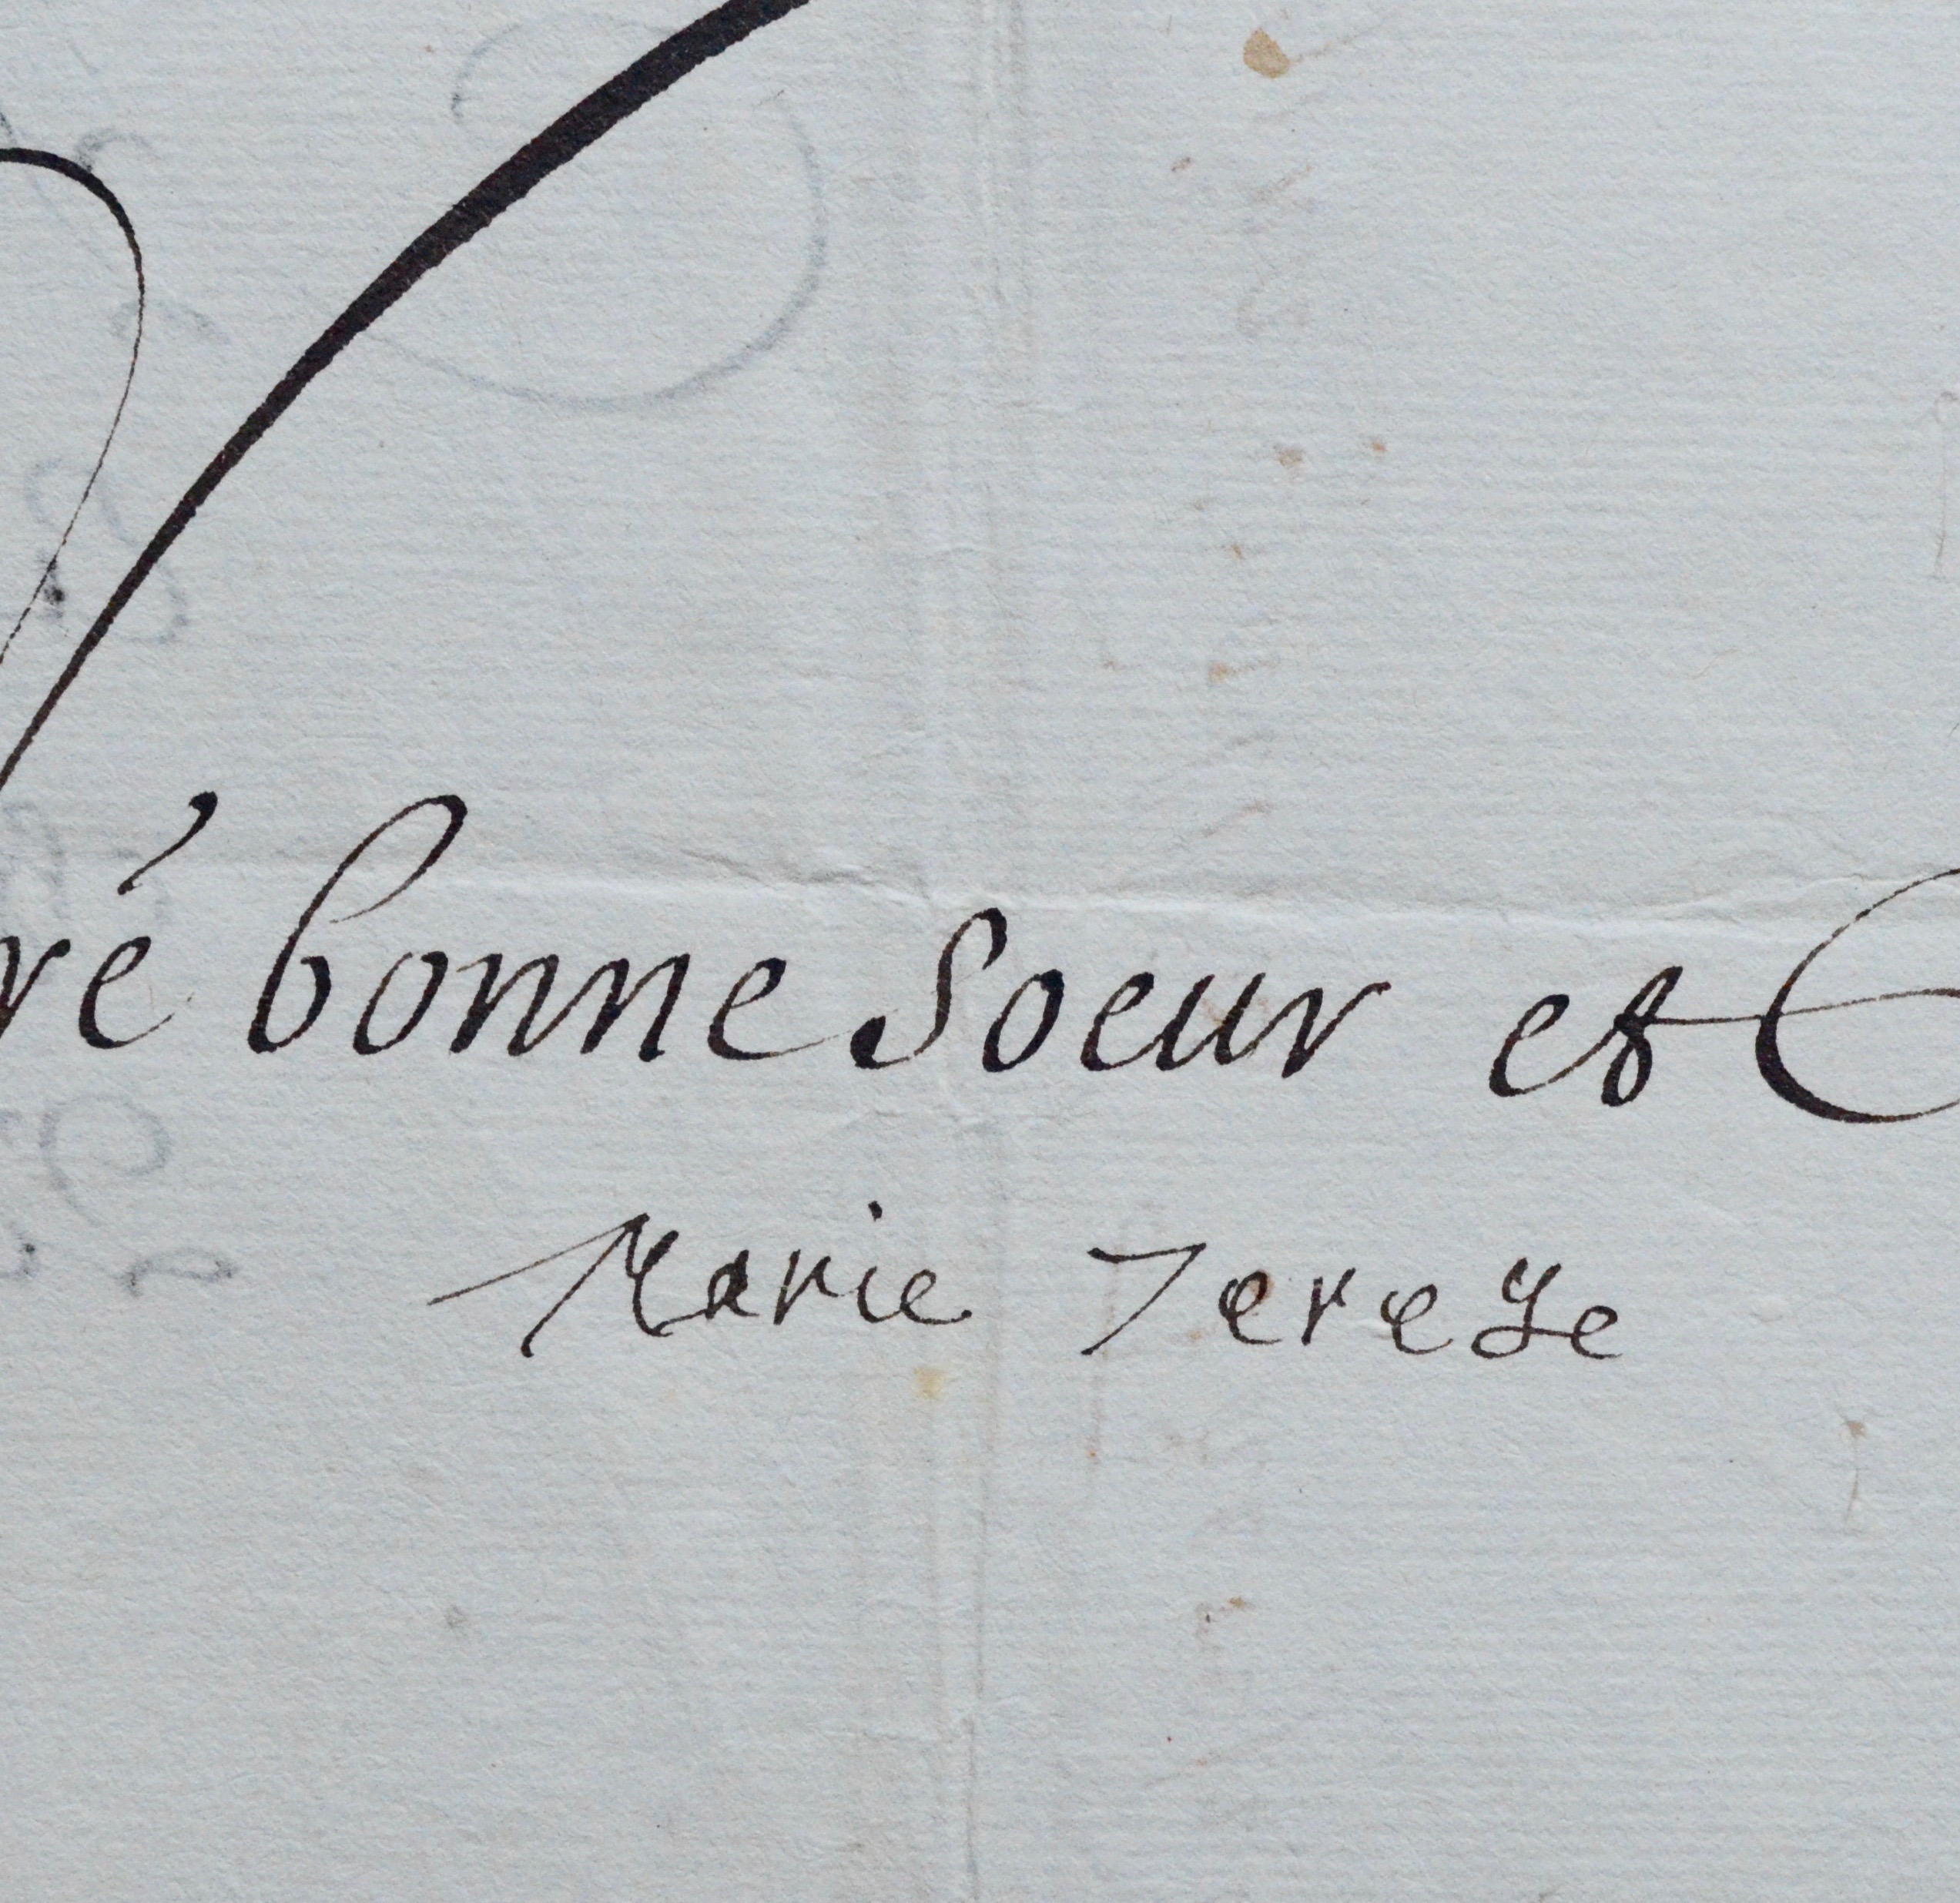 ré bonne soeur et C
Marie Terese